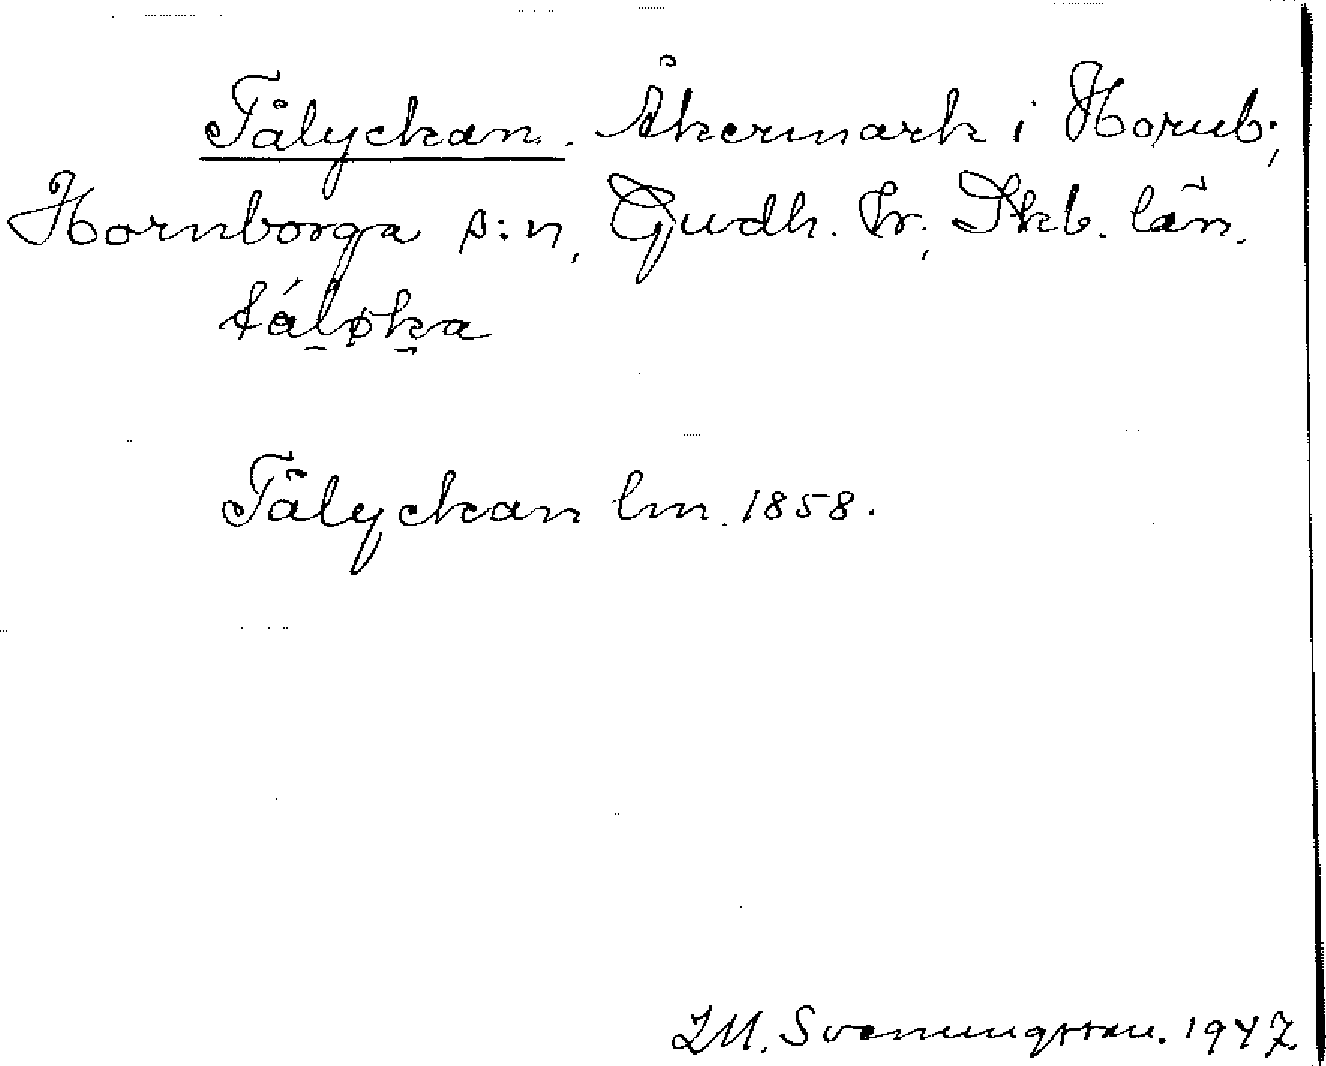 Tålyckan. Åkermark i Hornb.,
Hornborga s:n, Gudh. hr., Skb. län.
tálø̨ka
Tålyckan lm. 1858.
I.M. Svenungsson. 1947